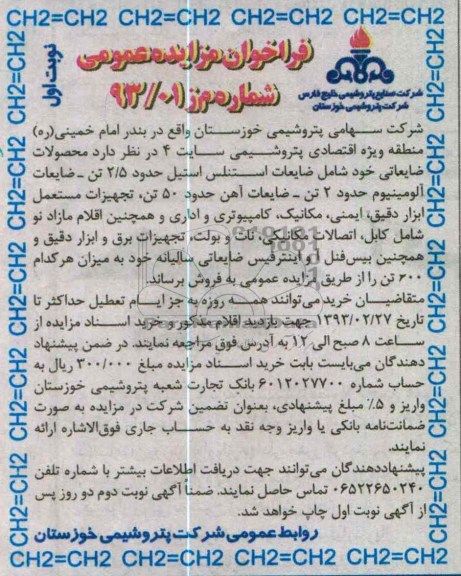 CH2=CH2 CH2=CH2 CH2=CH2 CH2=CH2
نوبت اول
فراخوان مزایده عمومی
شماره م ز ۹۳/۰۱
شرکت صنایع پتروشیمی خلیج فارس
شرکت پتروشیمی خوزستان
شرکت سهامی پتروشیمی خوزستان واقع در بندر امام خمینی(ره)
منطقه ویژه اقتصادی پتروشیمی سایت ۴ در نظر دارد محصولات
ضایعاتی خود شامل ضایعات استنلس استیل حدود ۲/۵ تن ـ ضایعات
آلومینیوم حدود ۲ تن ـ ضایعات آهن حدود ۵۰ تن، تجهیزات مستعمل
ابزار دقیق، ایمنی، مکانیک، کامپیوتری و اداری و همچنین اقلام مازاد نو
شامل کابل، اتصالات مکانیکی، نات و بولت، تجهیزات برق و ابزار دقیق و
همچنین بیس‌فنل آ و اینترفیس ضایعاتی سالیانه خود به میزان هرکدام
۶۰۰ تن را از طریق مزایده عمومی به فروش برساند.
متقاضیان خرید می‌توانند همه روزه به جز ایام تعطیل حداکثر تا
تاریخ ۱۳۹۳/۰۲/۲۷ جهت بازدید اقلام مذکور و خرید اسناد مزایده از
ساعت ۸ صبح الی ۱۲ به آدرس فوق مراجعه نمایند. در ضمن پیشنهاد
دهندگان می‌بایست بابت خرید اسناد مزایده مبلغ ۳۰۰/۰۰۰ ریال به
حساب شماره ۶۰۱۲۰۲۷۷۰۰ بانک تجارت شعبه پتروشیمی خوزستان
واریز و ۵٪ مبلغ پیشنهادی، بعنوان تضمین شرکت در مزایده به صورت
ضمانت‌نامه بانکی یا واریز وجه نقد به حساب جاری فوق‌الاشاره ارائه
نمایند.
پیشنهاددهندگان می‌توانند جهت دریافت اطلاعات بیشتر با شماره تلفن
۰۶۵۲۲۶۵۰۲۴۰ تماس حاصل نمایند. ضمناً آگهی نوبت دوم دو روز پس
از آگهی نوبت اول چاپ خواهد شد.
روابط عمومی شرکت پتروشیمی خوزستان
CH2=CH2 CH2=CH2 CH2=CH2 CH2=CH2
CH2=CH2 CH2=CH2 CH2=CH2 CH2=CH2
CH2=CH2 CH2=CH2 CH2=CH2 CH2=CH2